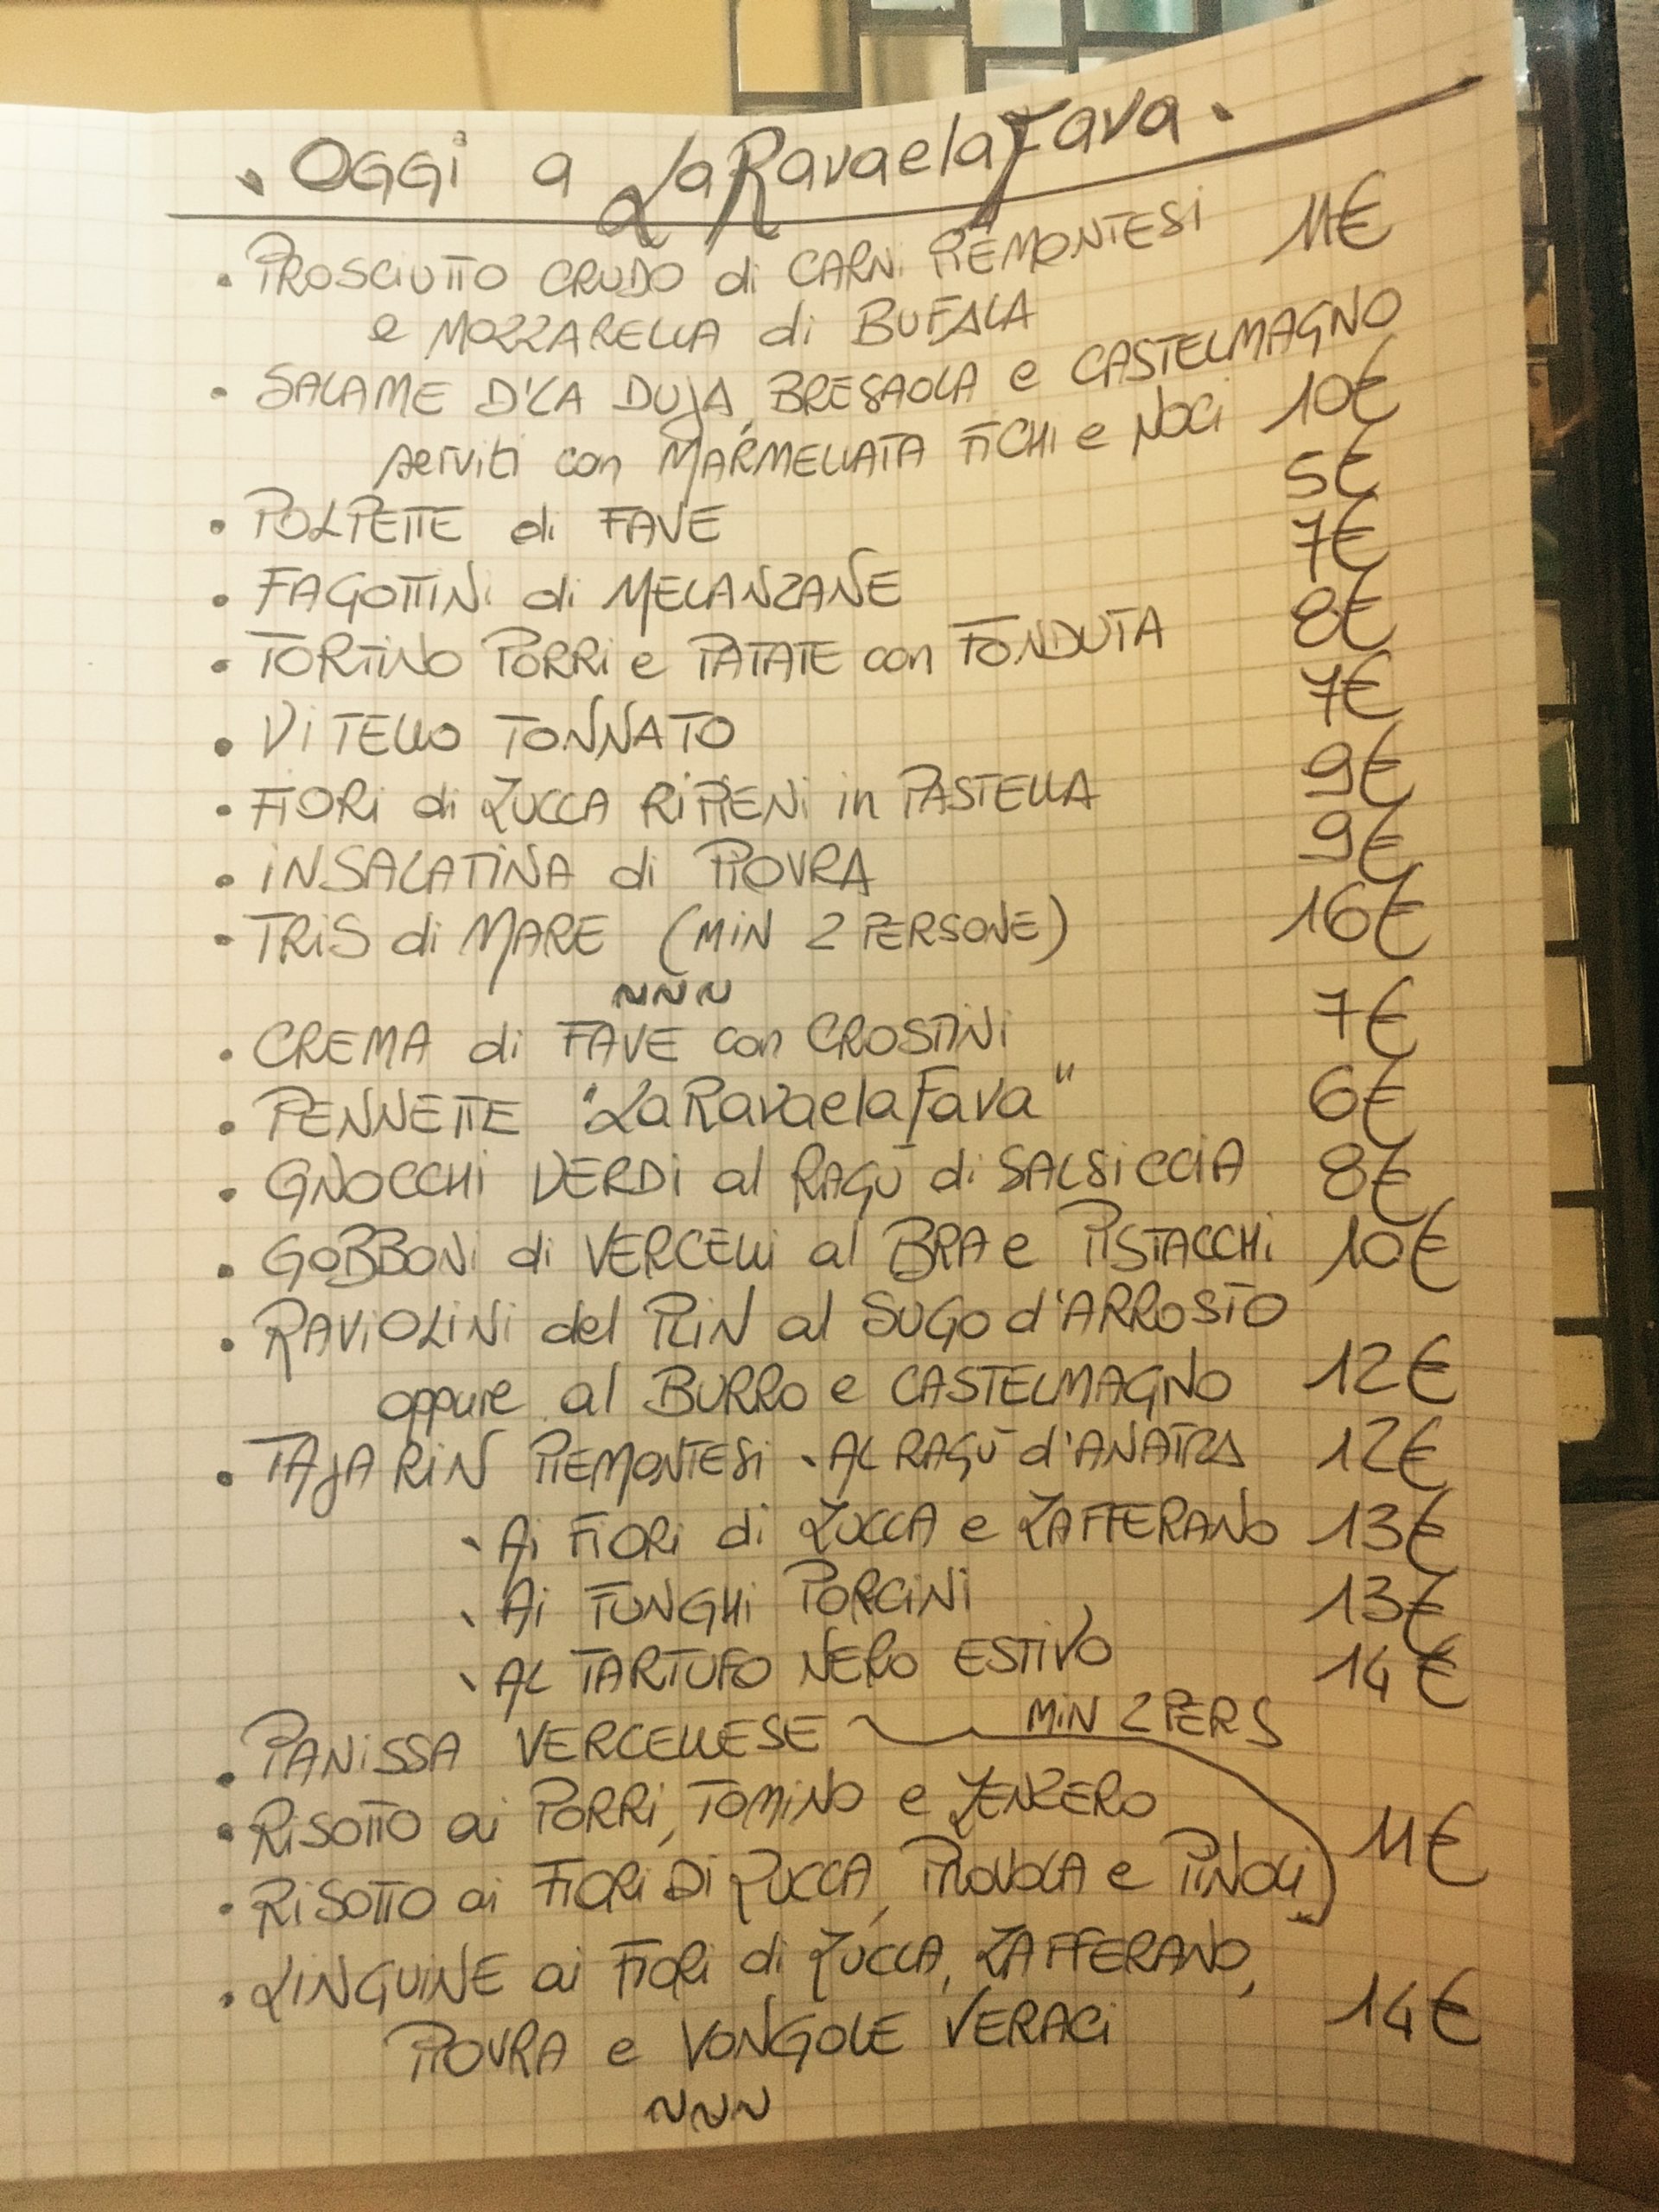 OGGi a LaRavaelaFava.
• PROSCIUTTO CRUDO di CARNi PiEMONTESi 11€
e MOZZARELLA di BUFALA
• SALAME D'LA DUJA, BRESAOLA e CASTELMAGNO
serviti con MARMELLATA FiCHi e NOCi 10€
• POLPETTE di FAVE 5€
• FAGOTTINi di MELANZANE 7€
• TORTINO PORRi e PATATE con FONDUTA 8€
• ViTELLO TONNATO 7€
• FiORi di ZUCCA RiPiENi in PASTELLA 9€
• iNSALATiNA di PiOVRA 9€
• TRiS di MARE (MiN 2 PERSONE) 16€
~~~
• CREMA di FAVE con CROSTiNi 7€
• PENNETTE "LaRavaelaFava" 6€
• GNOCCHi VERDi al RAGÙ di SALSiCCiA 8€
• GOBBONi di VERCELLi al BRA e PiSTACCHi 10€
• RAViOLiNi del PLiN al SUGO d'ARROSTO
oppure al BURRO e CASTELMAGNO 12€
• TAJARiN PiEMONTESi - AL RAGÙ d'ANATRA 12€
- Ai FiORi di ZUCCA e ZAFFERANO 13€
- Ai FUNGHi PORCiNi 13€
- AL TARTUFO NERO ESTiVO 14€
• PANiSSA VERCELLESE MiN 2 PERS
• RiSOTTO ai PORRi, TOMiNO e ZENZERO 11€
• RiSOTTO ai FiORi Di ZUCCA, PROVOLA e PiNOLi
• LiNGUiNE ai FiORi di ZUCCA, ZAFFERANO,
PiOVRA e VONGOLE VERACi 14€
~~~